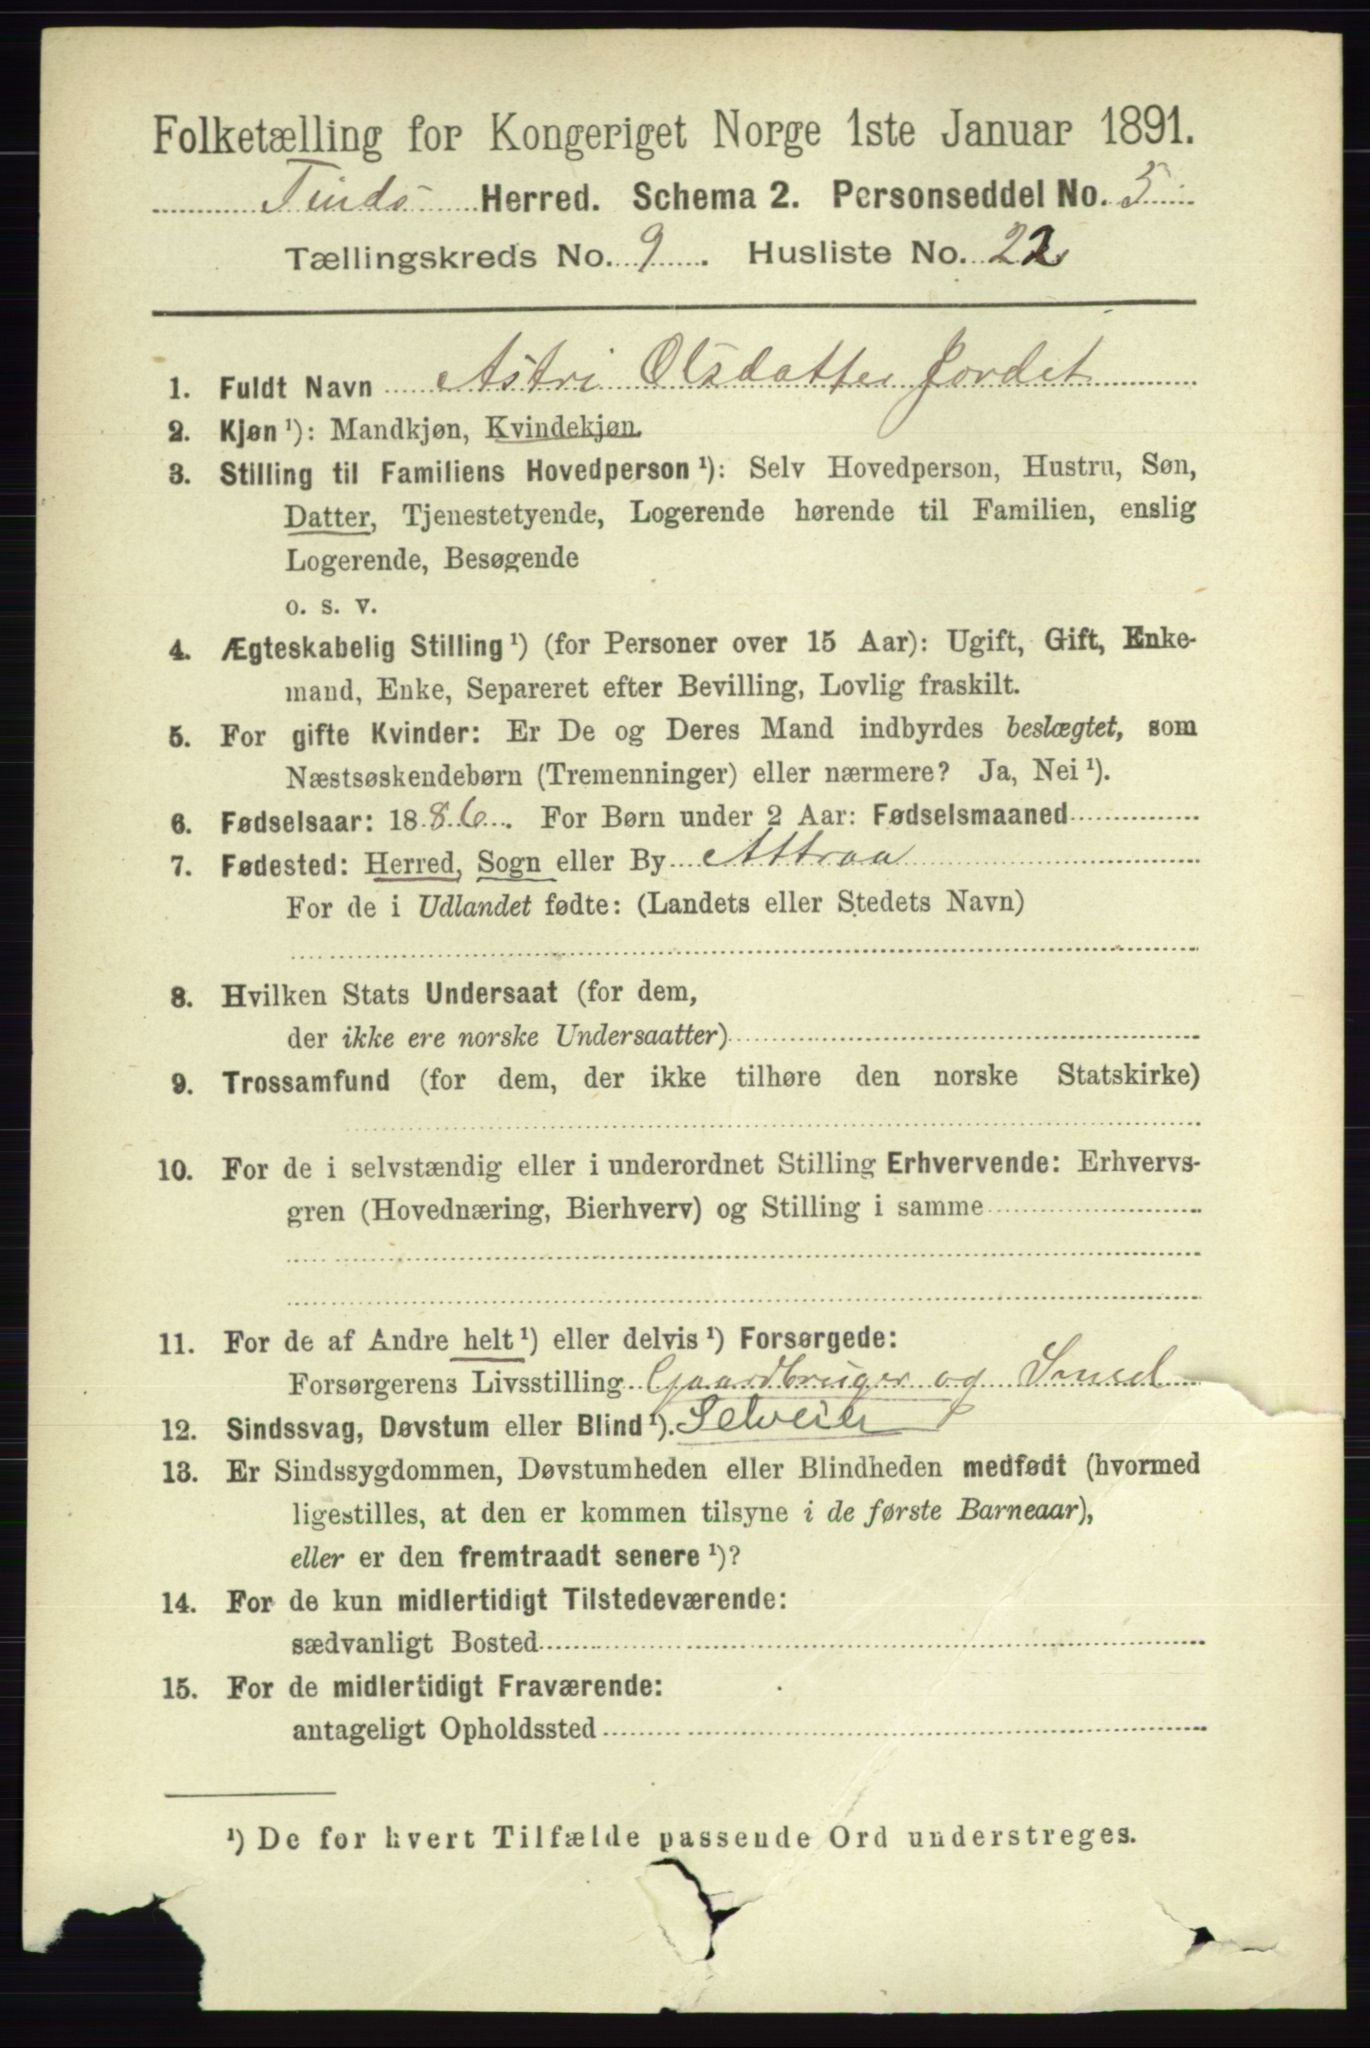 Folketælling for Kongeriget Norge 1ste Januar 1891.
Tinds Herred. Schema 2. Personseddel No. 5
Tællingskreds No. 9. Husliste No. 22
1. Fuldt Navn Astri Olsdatter Jordet
2. Kjøn ¹): Mandkjøn, Kvindekjøn.
3. Stilling til Familiens Hovedperson ¹): Selv Hovedperson, Hustru, Søn,
Datter, Tjenestetyende, Logerende hørende til Familien, enslig
Logerende, Besøgende
o. s. v.
4. Ægteskabelig Stilling ¹) (for Personer over 15 Aar): Ugift, Gift, Enke-
mand, Enke, Separeret efter Bevilling, Lovlig fraskilt.
5. For gifte Kvinder: Er De og Deres Mand indbyrdes beslægtet, som
Næstsøskendebørn (Tremenninger) eller nærmere? Ja, Nei ¹).
6. Fødselsaar: 1886. For Børn under 2 Aar: Fødselsmaaned
7. Fødested: Herred, Sogn eller By Attraa
For de i Udlandet fødte: (Landets eller Stedets Navn)
8. Hvilken Stats Undersaat (for dem,
der ikke ere norske Undersaatter)
9. Trossamfund (for dem, der ikke tilhøre den norske Statskirke)
10. For de i selvstændig eller i underordnet Stilling Erhvervende: Erhvervs-
gren (Hovednæring, Bierhverv) og Stilling i samme
11. For de af Andre helt ¹) eller delvis ¹) Forsørgede:
Forsørgerens Livsstilling Gaardbruger og Smed
12. Sindssvag, Døvstum eller Blind ¹). Selveier
13. Er Sindssygdommen, Døvstumheden eller Blindheden medfødt (hvormed
ligestilles, at den er kommen tilsyne i de første Barneaar),
eller er den fremtraadt senere ¹)?
14. For de kun midlertidigt Tilstedeværende:
sædvanligt Bosted
15. For de midlertidigt Fraværende:
antageligt Opholdssted
¹) De for hvert Tilfælde passende Ord understreges.